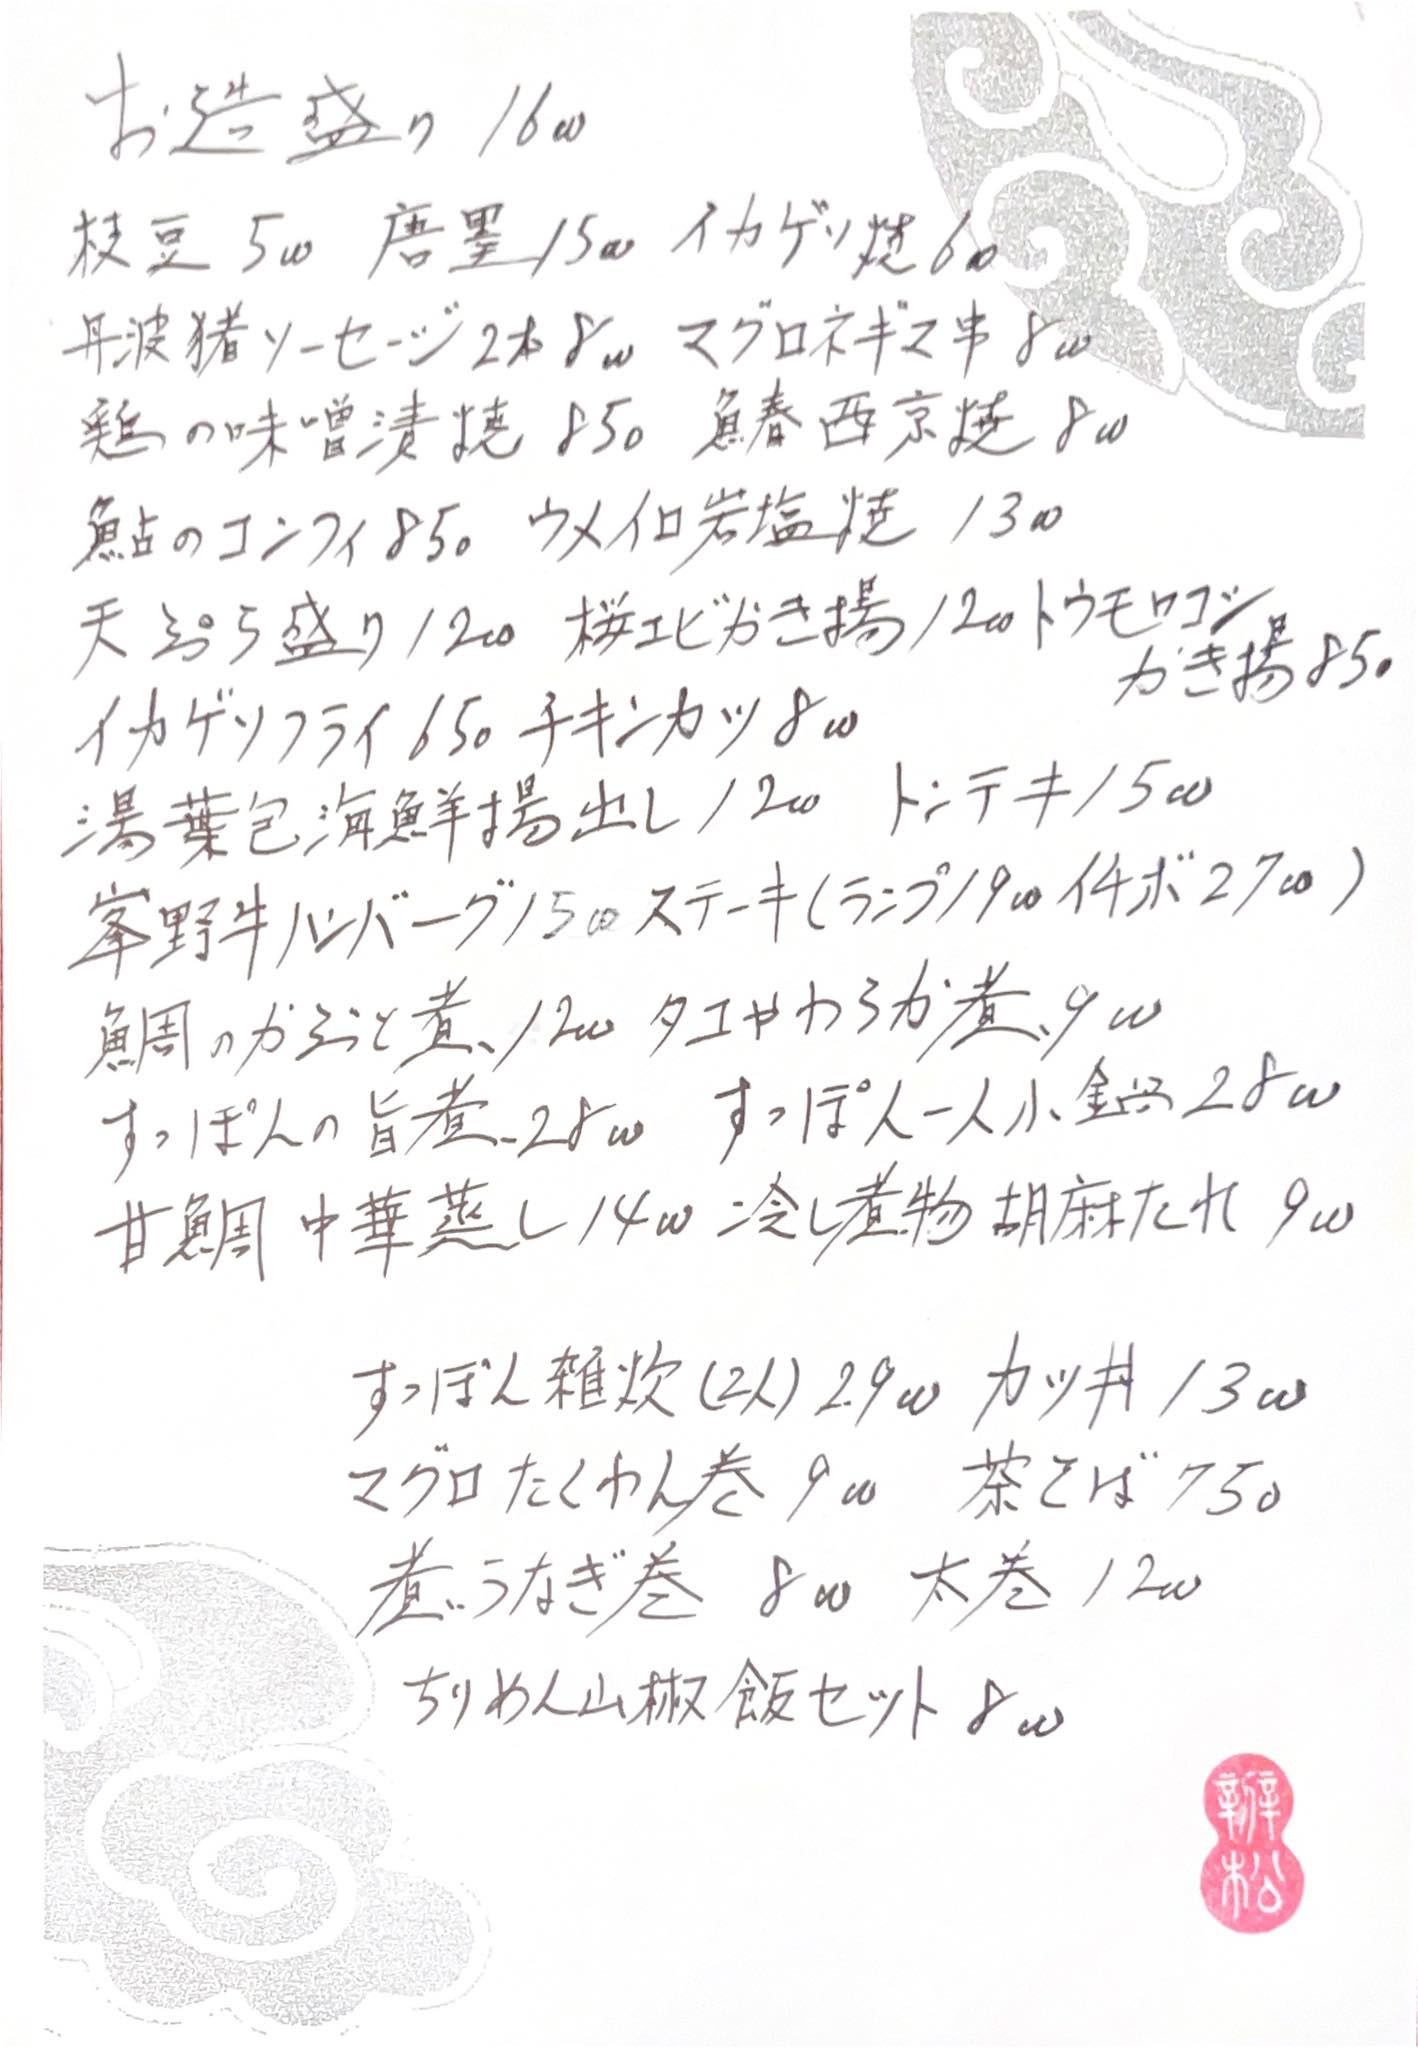 お造盛り 1600
枝豆 500 唐墨 1500 イカゲソ焼 600
丹波猪ソーセージ2本 800 マグロネギマ串 800
鶏の味噌漬焼 850 鰆西京焼 800
鮎のコンフィ 850 ウメイロ岩塩焼 1300
天ぷら盛り 1200 桜エビかき揚 1200 トウモロコシ
かき揚 850
イカゲソフライ 650 チキンカツ 800
湯葉包海鮮揚出し 1200 トンテキ 1500
峯野牛ハンバーグ 1500 ステーキ(ランプ1900 イチボ2700)
鯛のかぶと煮 1200 タコやわらか煮 900
すっぽんの旨煮 2800 すっぽん一人小鍋 2800
甘鯛 中華蒸し 1400 冷し煮物 胡麻たれ 900
すっぽん雑炊(2人) 2900 カツ丼 1300
マグロたくわん巻 900 茶そば 750
煮うなぎ巻 800 太巻 1200
ちりめん山椒飯セット 800
辨松